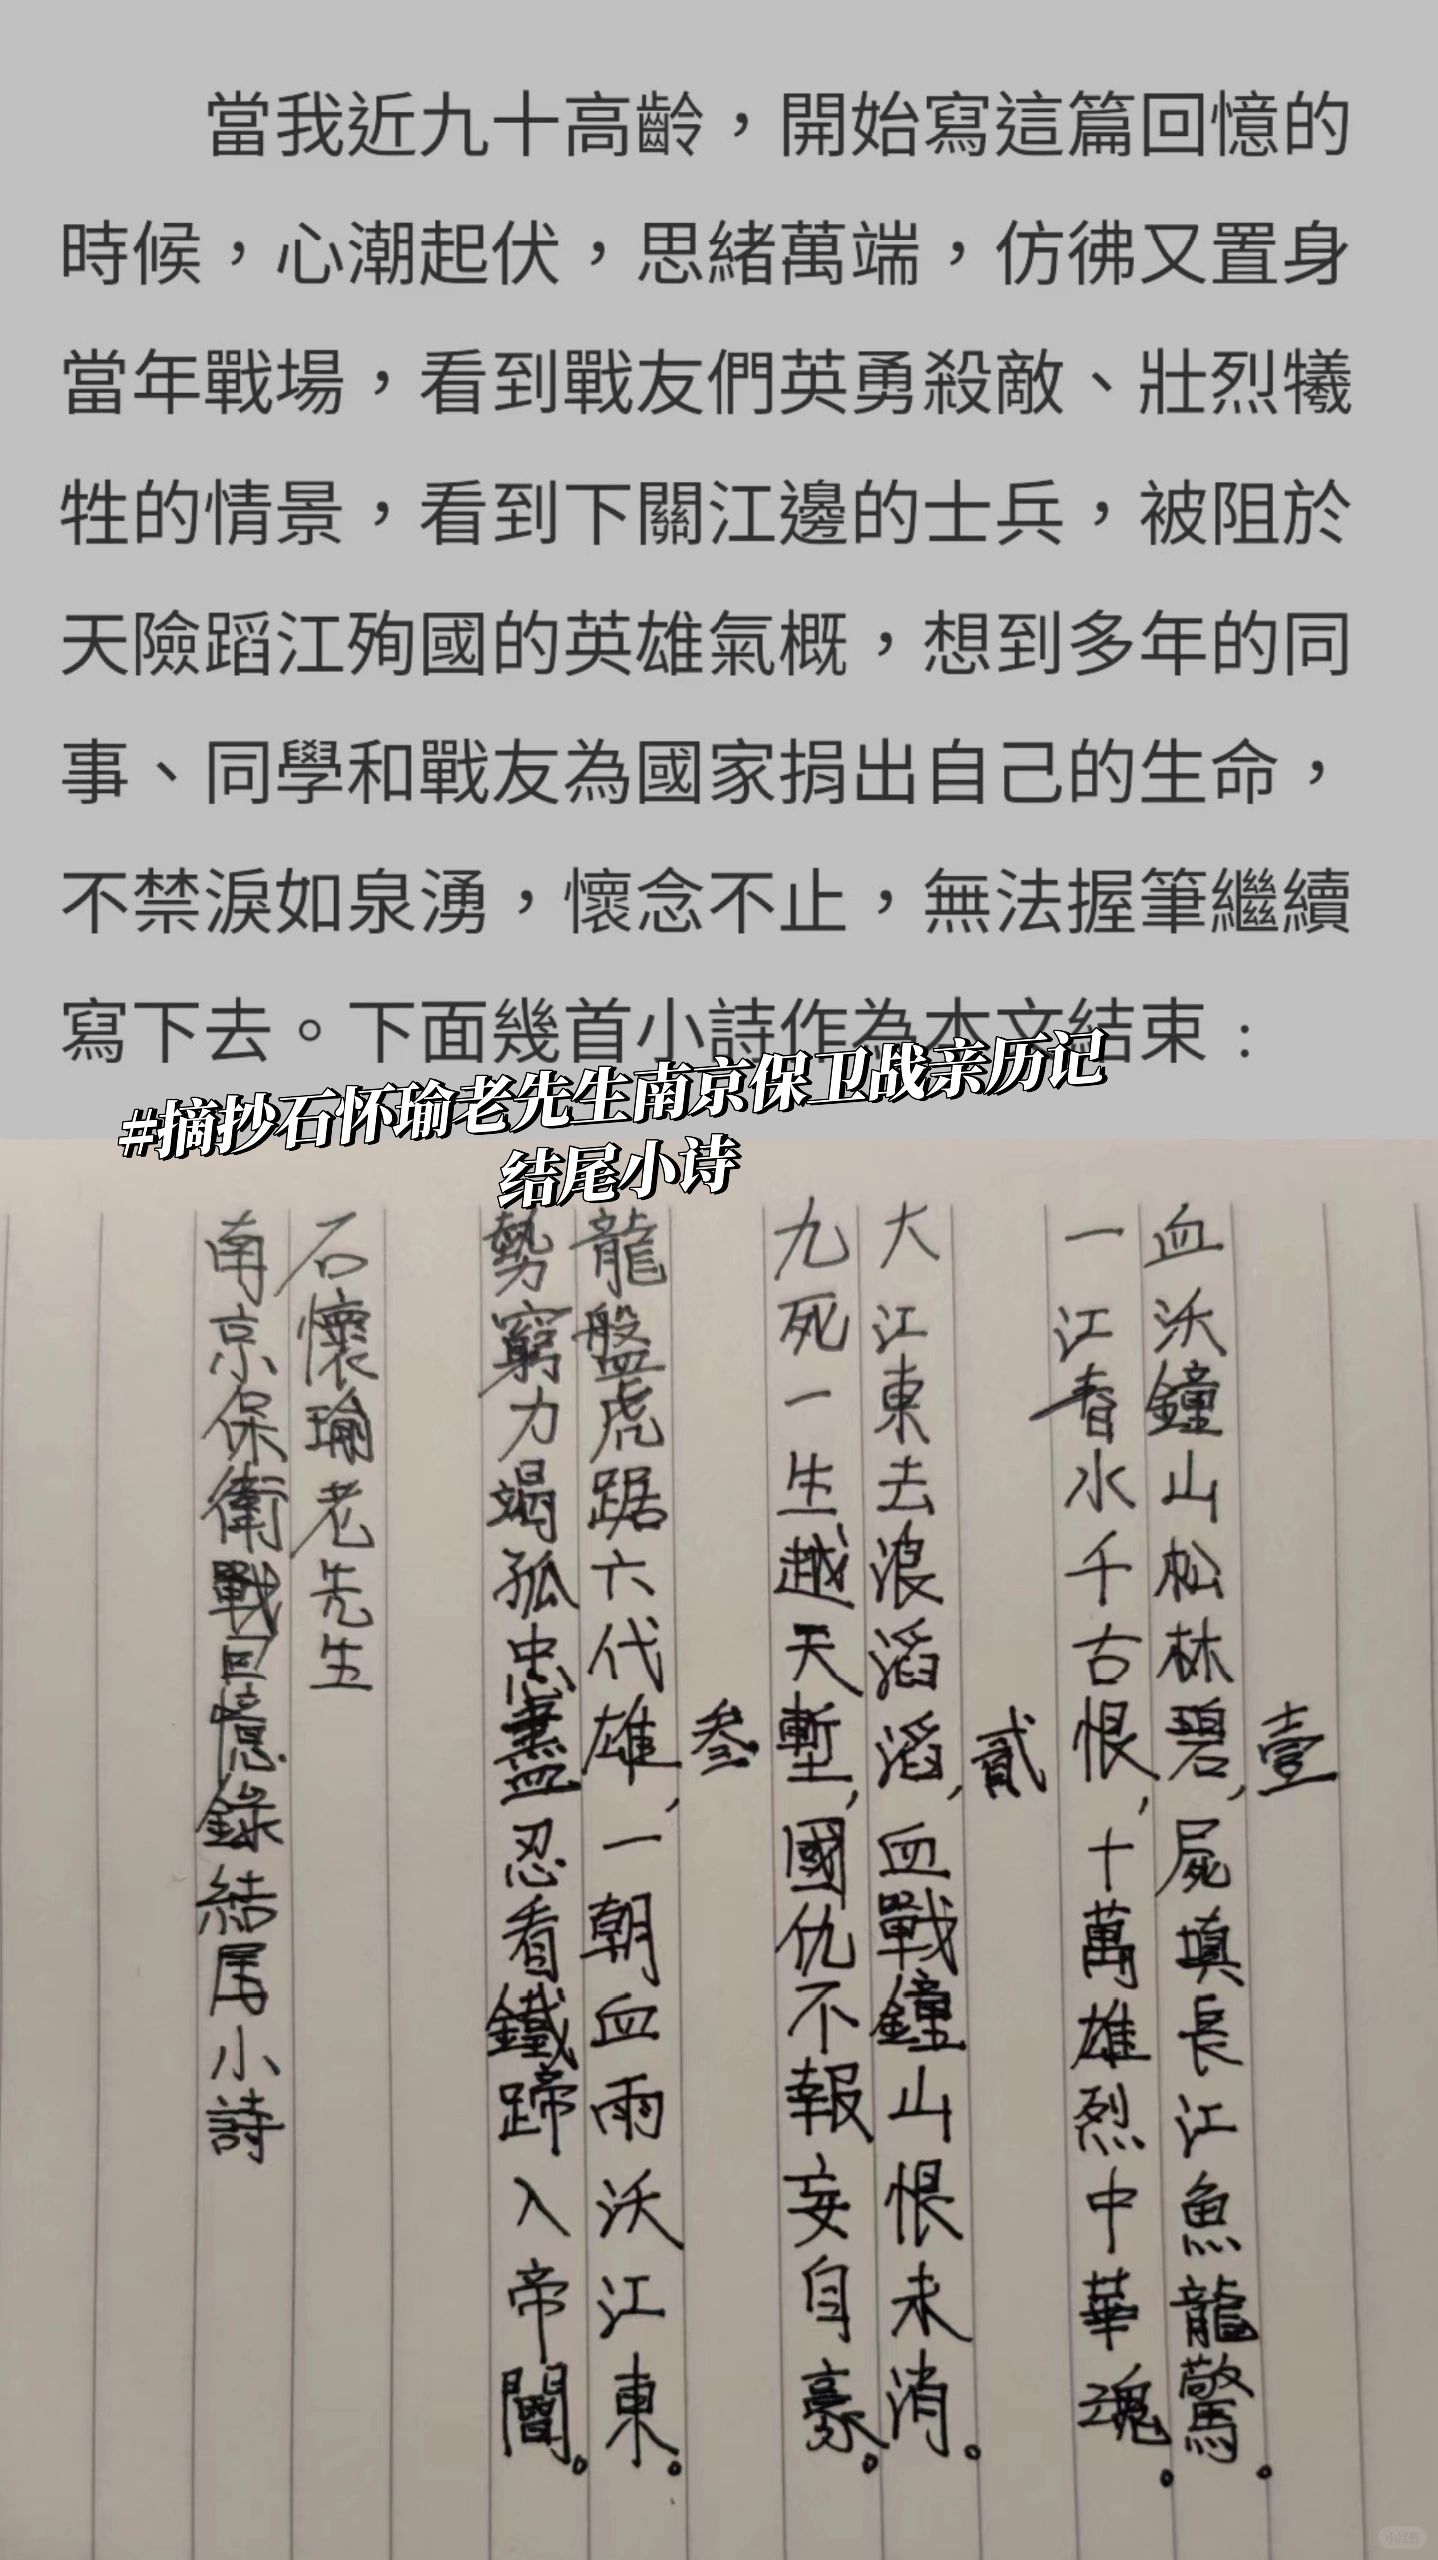 當我近九十高齡，開始寫這篇回憶的
時候，心潮起伏，思緒萬端，仿彿又置身
當年戰場，看到戰友們英勇殺敵、壯烈犧
牲的情景，看到下關江邊的士兵，被阻於
天險蹈江殉國的英雄氣概，想到多年的同
事、同學和戰友為國家捐出自己的生命，
不禁淚如泉湧，懷念不止，無法握筆繼續
寫下去。下面幾首小詩作為本文結束：
#摘抄石怀瑜老先生南京保卫战亲历记
结尾小诗
壹
血沃鐘山松林碧，屍填長江魚龍驚。
一江春水千古恨，十萬雄烈中華魂。
貳
大江東去浪滔滔，血戰鐘山恨未消。
九死一生越天塹，國仇不報妄自豪。
叁
龍盤虎踞六代雄，一朝血雨沃江東。
勢窮力竭孤忠盡忍看鐵蹄入帝闉。
石懷瑜老先生
南京保衛戰回憶錄結尾小詩
小红书